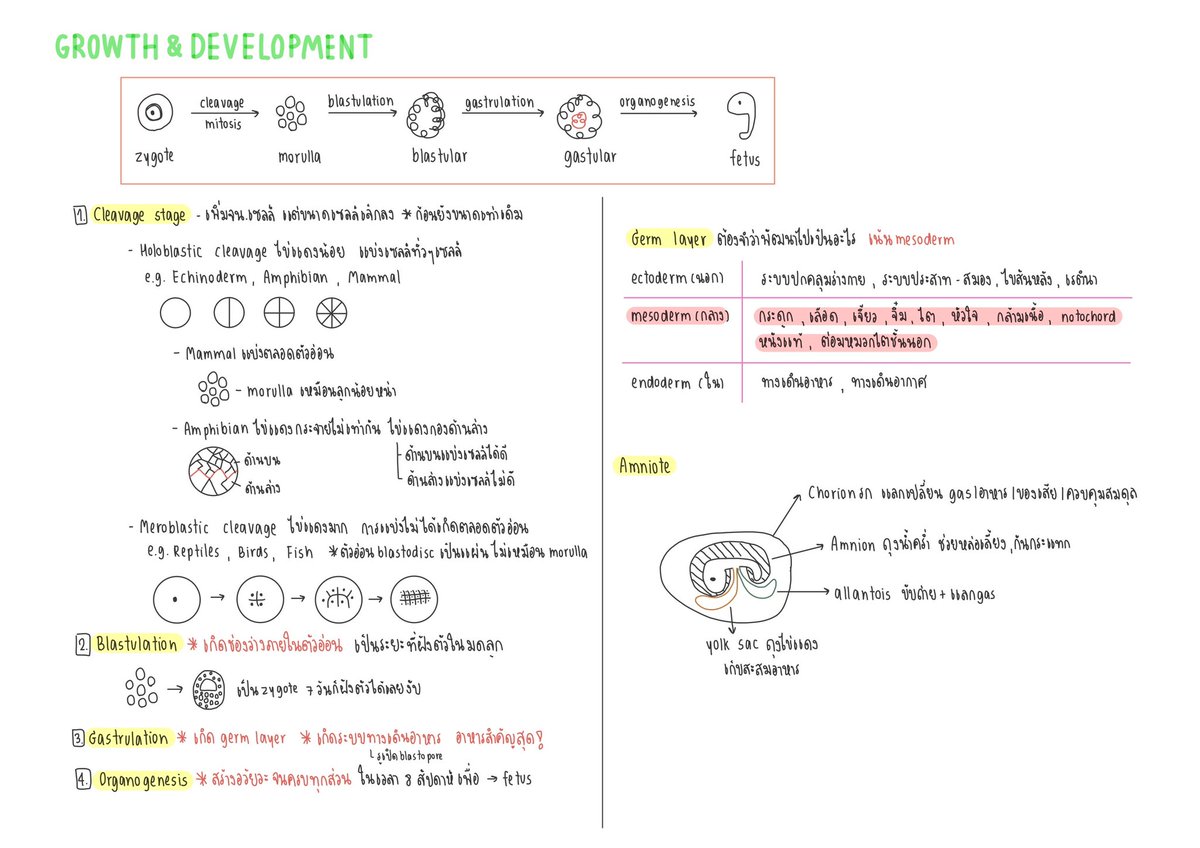 GROWTH & DEVELOPMENT
cleavage
mitosis
blastulation
gastrulation
organogenesis
zygote
morulla
blastular
gastular
fetus
1. Cleavage stage - เพิ่มจน.เซลล์ แต่ขนาดเซลล์เล็กลง * ก้อนยังขนาดเท่าเดิม
- Holoblastic cleavage ไข่แดงน้อย แบ่งเซลล์ทั่วๆเซลล์
e.g. Echinoderm, Amphibian, Mammal
- Mammal แบ่งตลอดตัวอ่อน
- morulla เหมือนลูกน้อยหน่า
- Amphibian ไข่แดงกระจายไม่เท่ากัน ไข่แดงกองด้านล่าง
ด้านบน
ด้านล่าง
ด้านบนแบ่งเซลล์ได้ดี
ด้านล่างแบ่งเซลล์ไม่ดี
- Meroblastic cleavage ไข่แดงมาก การแบ่งไม่ได้เกิดตลอดตัวอ่อน
e.g. Reptiles, Birds, Fish *ตัวอ่อน blastodisc เป็นแผ่น ไม่เหมือน morulla
2. Blastulation * เกิดช่องว่างภายในตัวอ่อน เป็นระยะที่ฝังตัวในมดลูก
เป็น zygote 7 วันก็ฝังตัวได้เลยงับ
3. Gastrulation * เกิด germ layer * เกิดระบบทางเดินอาหาร อาหารสำคัญสุด!
รูเปิด blastopore
4. Organogenesis * สร้างอวัยวะจนครบทุกส่วน ในเวลา 8 สัปดาห์ เพื่อ → fetus
Germ layer ต้องจำว่าพัฒนาไปเป็นอะไร เน้น mesoderm
ectoderm (นอก) ระบบปกคลุมร่างกาย, ระบบประสาท - สมอง, ไขสันหลัง, เรตินา
mesoderm (กลาง) กระดูก, เลือด, เจี๊ยว, จิ๋ม, ไต, หัวใจ, กล้ามเนื้อ, notochord
หนังแท้, ต่อมหมวกไตชั้นนอก
endoderm (ใน) ทางเดินอาหาร, ทางเดินอากาศ
Amniote
Chorion รก แลกเปลี่ยน gas/อาหาร/ของเสีย/ควบคุมสมดุล
Amnion ถุงน้ำคร่ำ ช่วยหล่อเลี้ยง, กันกระแทก
allantois ขับถ่าย + แลกgas
yolk sac ถุงไข่แดง
เก็บสะสมอาหาร